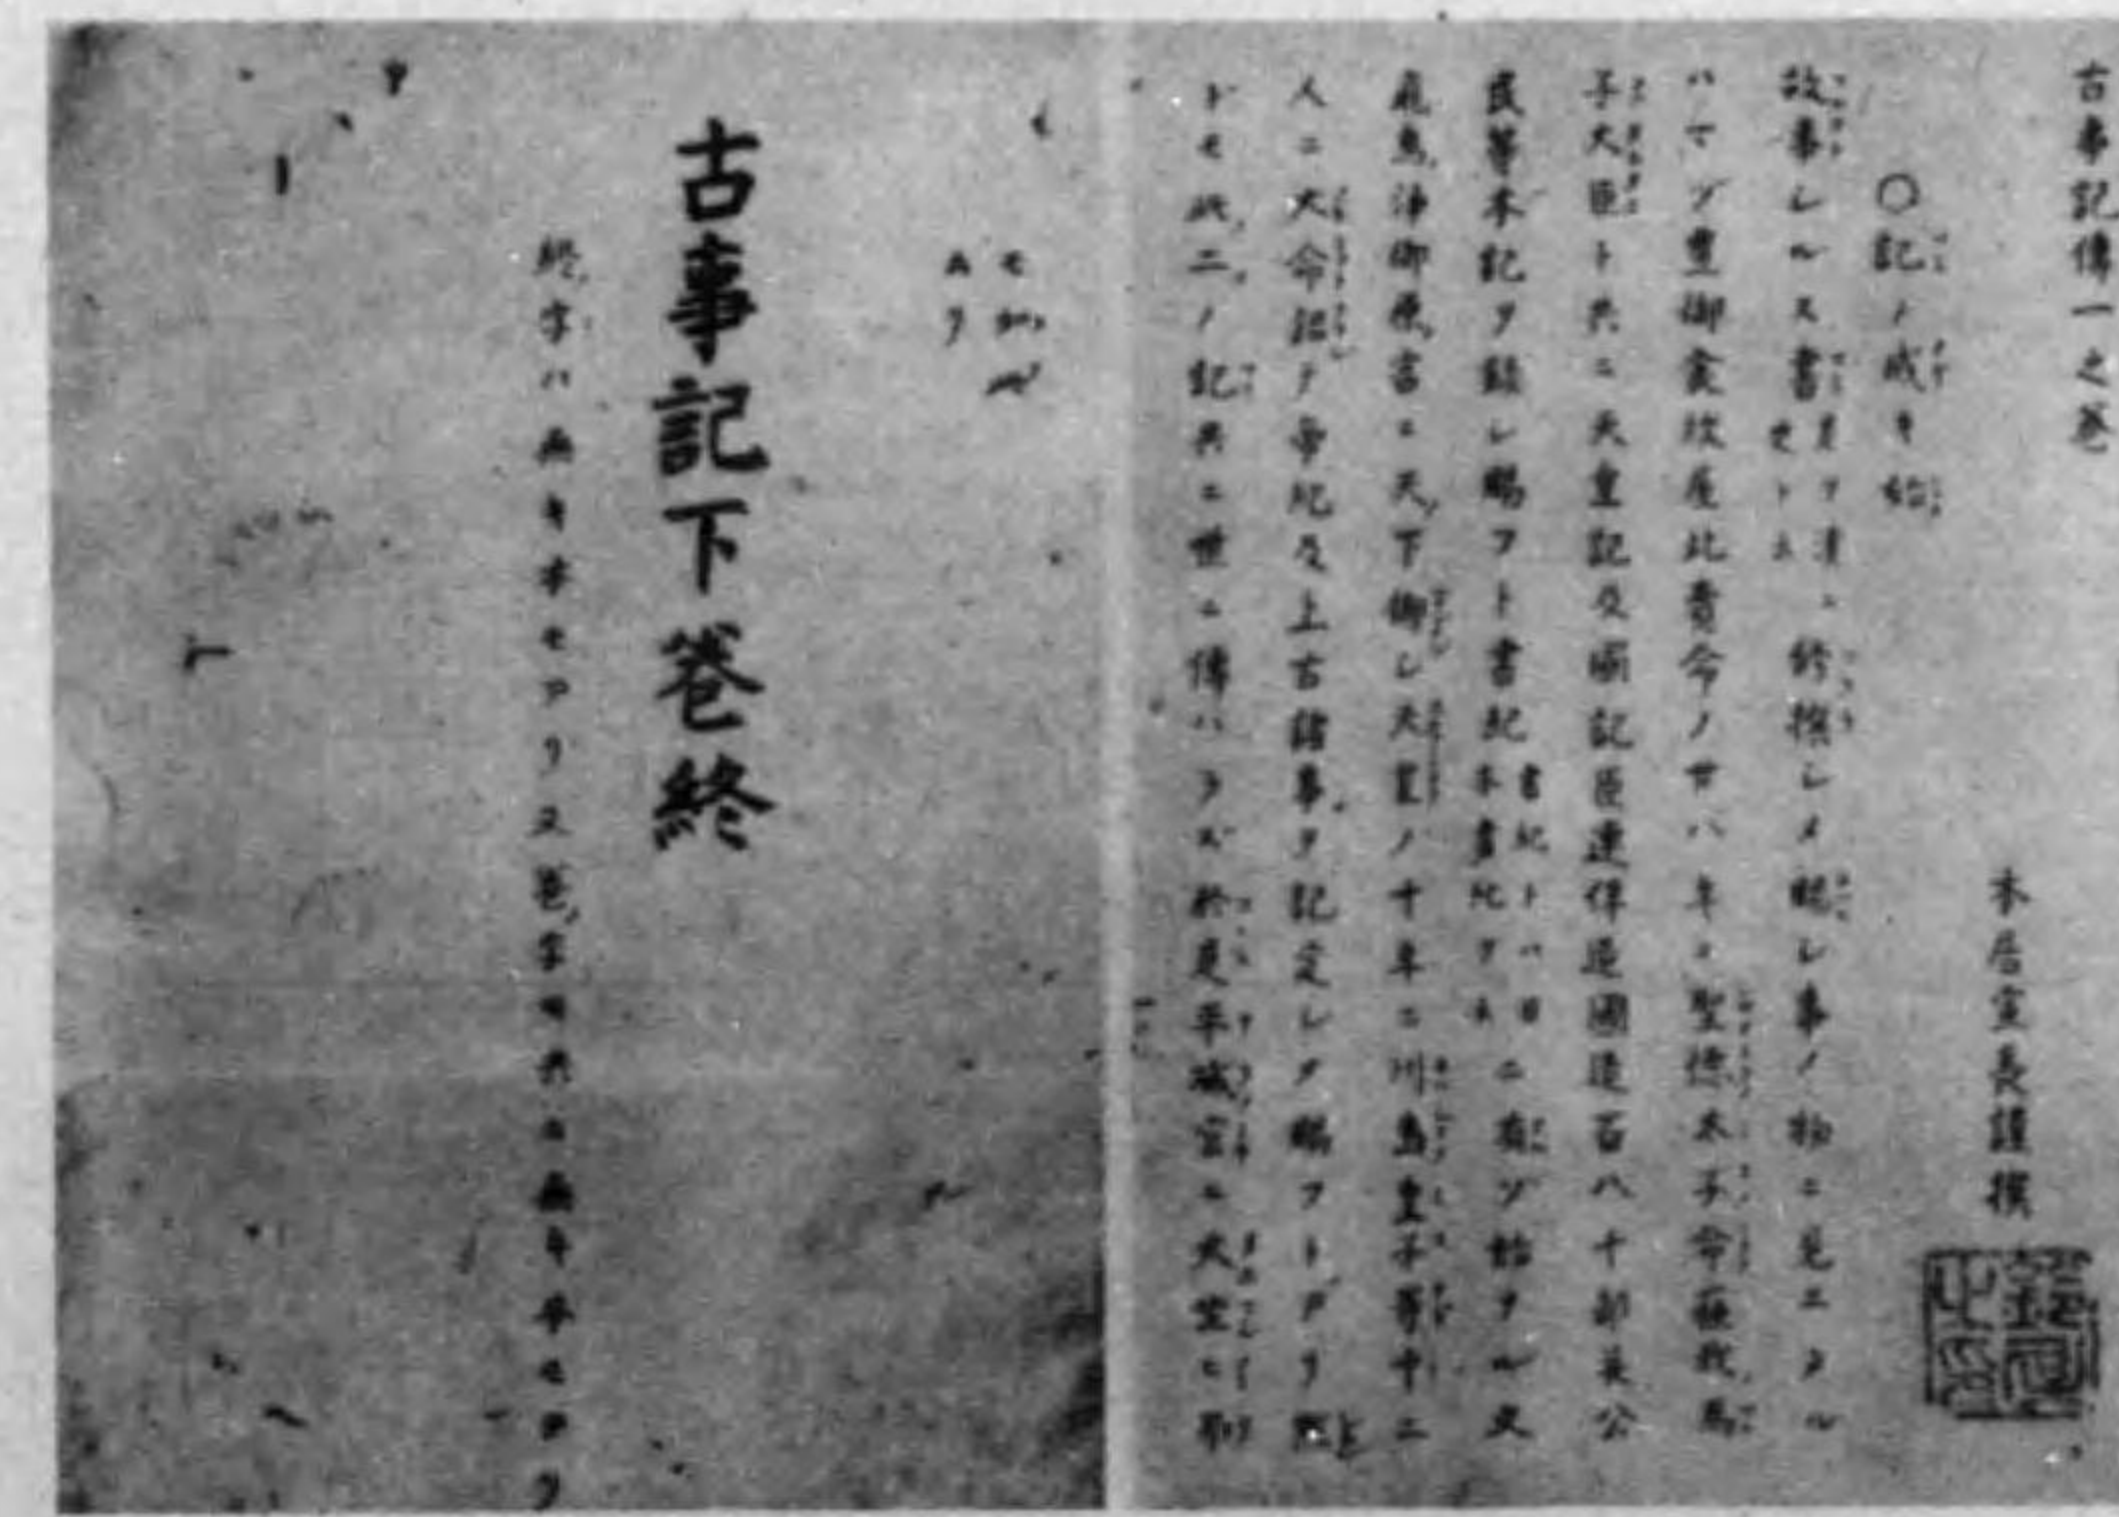 古事記傳一之卷
本居宣長謹撰
○記ノ成キ始
故事シルス書 ニ修撰シメ賜シ事ノ物ニ見エタル
ハマヅ豊御食炊屋比賣命ノ廿八年ニ聖徳太子命蘇我馬
子大臣ト共ニ天皇記及國記臣連伴造國造百八十部并公
民等本記ヲ録シ賜フト書紀 ニ有ゾ始ナル又
飛鳥淨御原宮ニ天下御シ天皇ノ十年ニ川嶋皇子等十二
人ニ大命詔テ帝紀及上古諸事ヲ記定シメ賜フトアリ然
ドモ此二ノ記共ニ世ニ傳ハラズ於是平城宮ニ
アリ
古事記下卷終
終字ハ無キ本モアリ又卷字モ共ニ無キ本モアリ